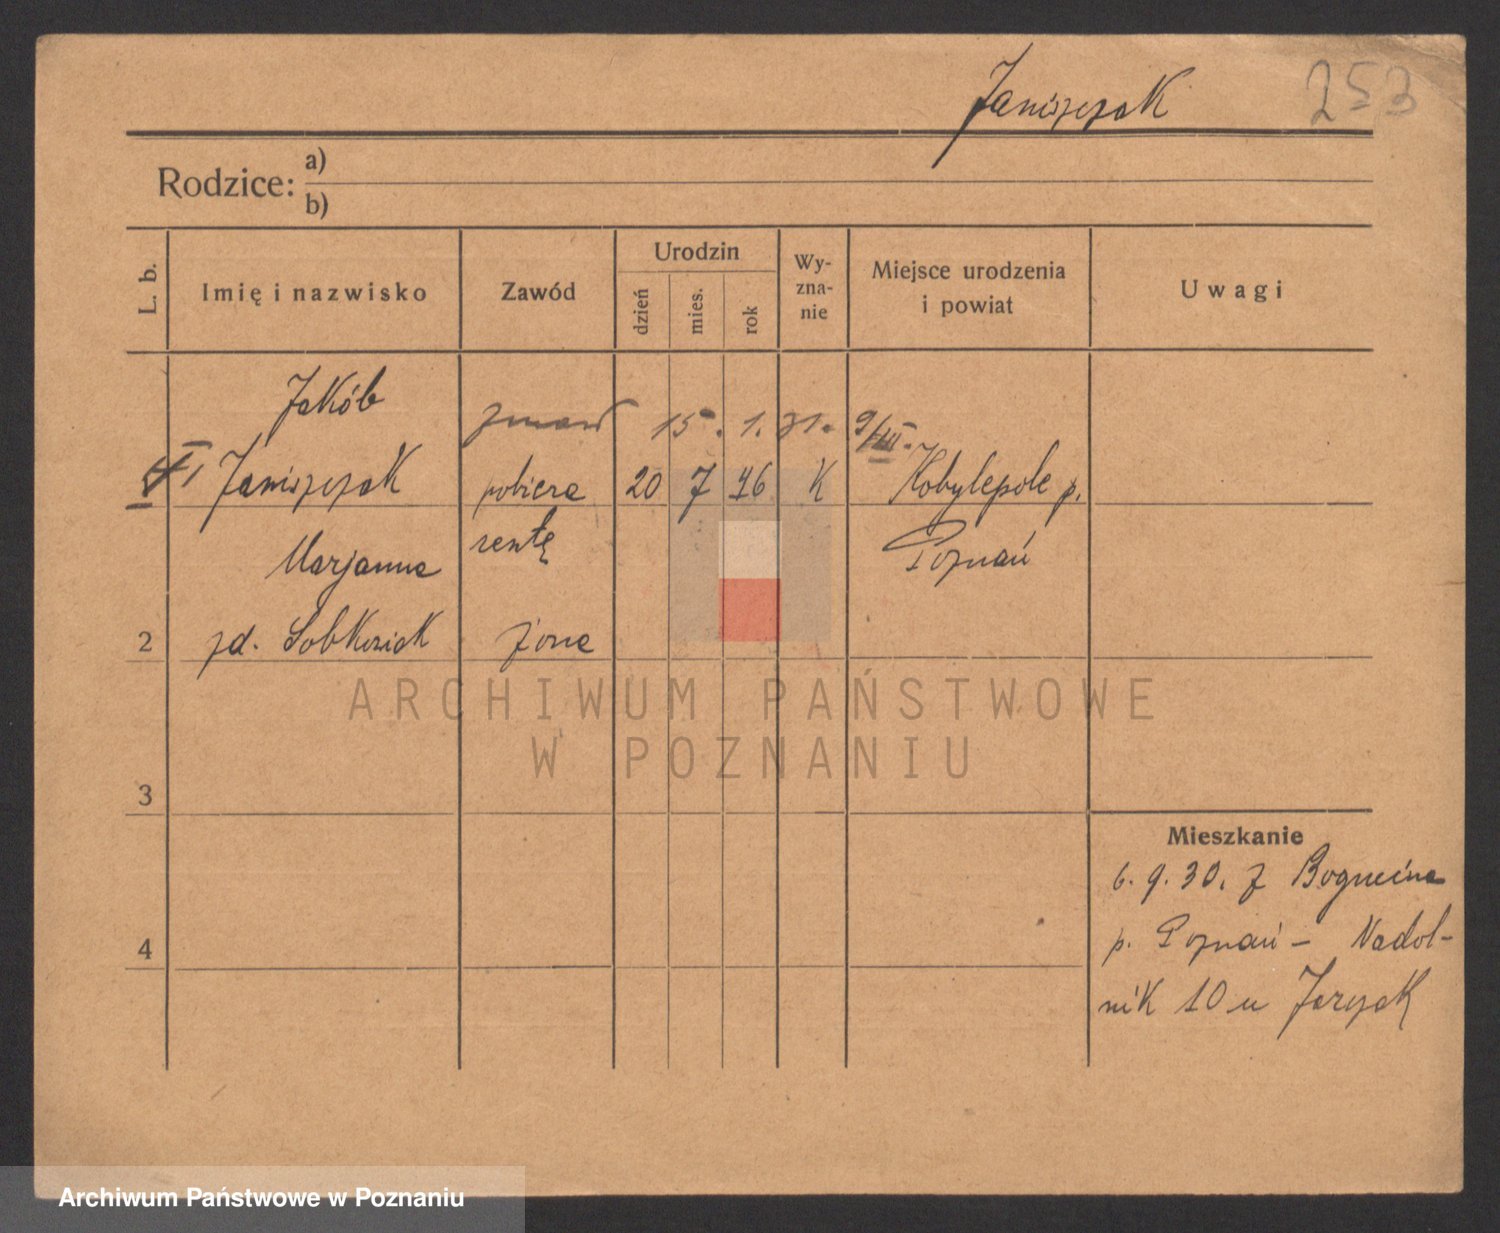 Janiszczak
253
Rodzice: a)
b)
L. b.
Imię i nazwisko
Zawód
Urodzin
dzień
mies.
rok
Wy-
zna-
nie
Miejsce urodzenia
i powiat
Uwagi
Jakób
zmarł 15. 1. 31. 9/III.
1 Janiszczak pobiera 20 7 46 K Kobylepole p.
rentę Poznań
Marjanna
2 zd. Sobkowiak żona
3
4
Mieszkanie
6. 9. 30. z
p. Poznań – Nadol-
nik 10 u
ARCHIWUM PAŃSTWOWE
W POZNANIU
Archiwum Państwowe w Poznaniu